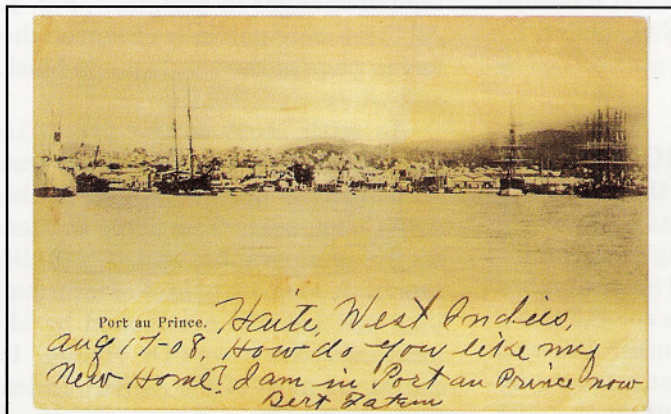 Port au Prince. Haite, West Indies,
Aug 17-08, How do you like my
New Home? I am in Port au Prince now
Bert